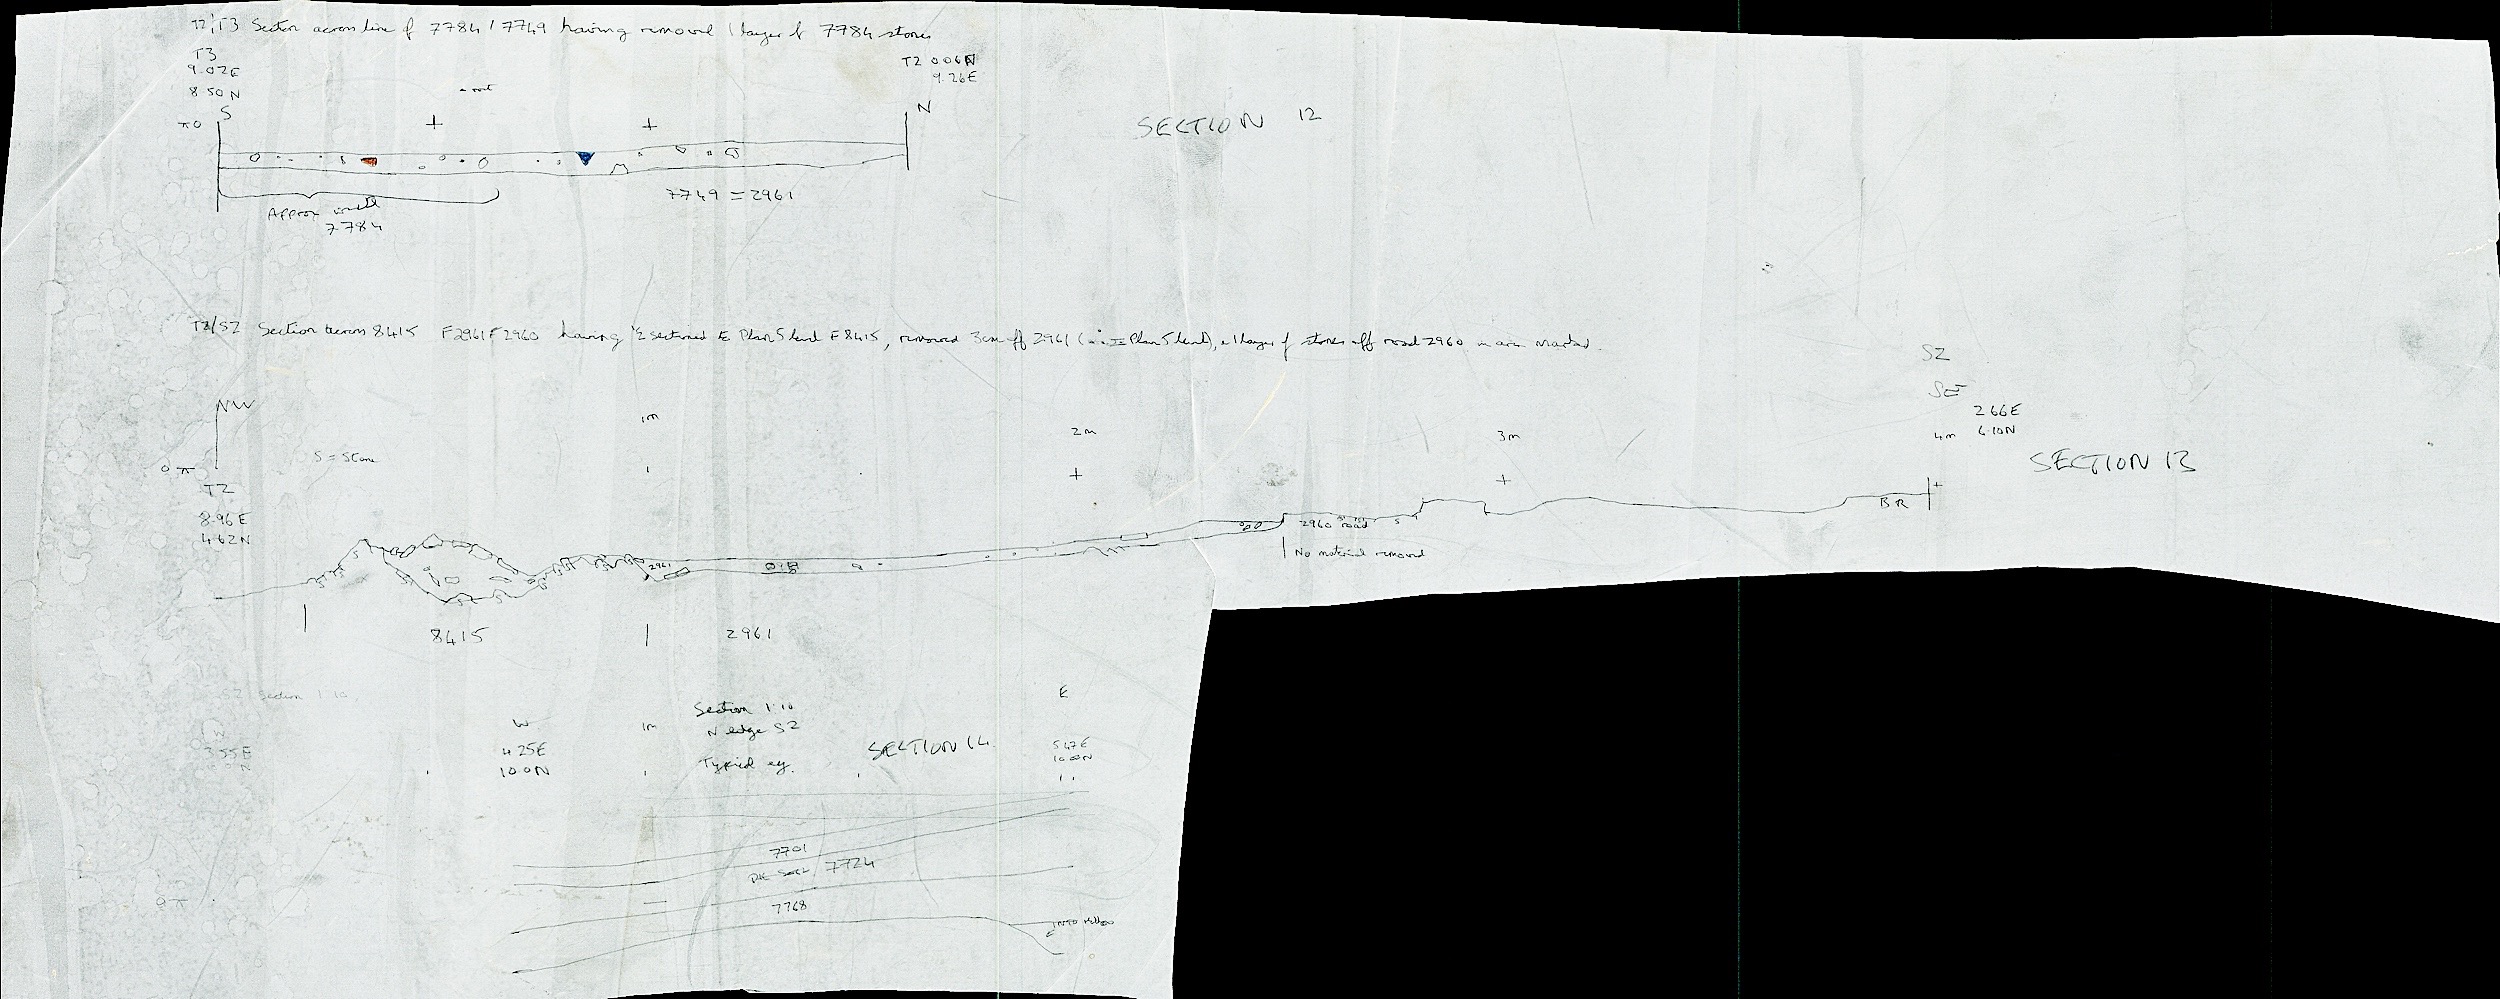 T2/T3 Section across line of 7784 / 7749 having removed 1 layer of 7784 stones
T3
9.02E
8.50N
S
T2 0.06N
9.26E
N
SECTION 12
0
Approx
7784
7749 = 2961
T2/S2 Section across 8415 F2961 F2960 having 1/2 sectioned E Plan 5 level F8415, removed 3cm off 2961 ( Plan 5 level), 1 layer of stones off road 2960 in area marked.
NW
S = Stone
1m
2m
3m
4m
S2
SE
2.66E
6.10N
SECTION 13
0
T2
8.96E
4.62N
2961
2960 road
BR
No material removed
8415
2961
S2 Section 1:10
W
3.55E
W
4.25E
10.0N
1m
Section 1:10
N edge S2
Typical eg.
SECTION 14
E
5.47E
10.00N
7701
7724
7768
0
INTO